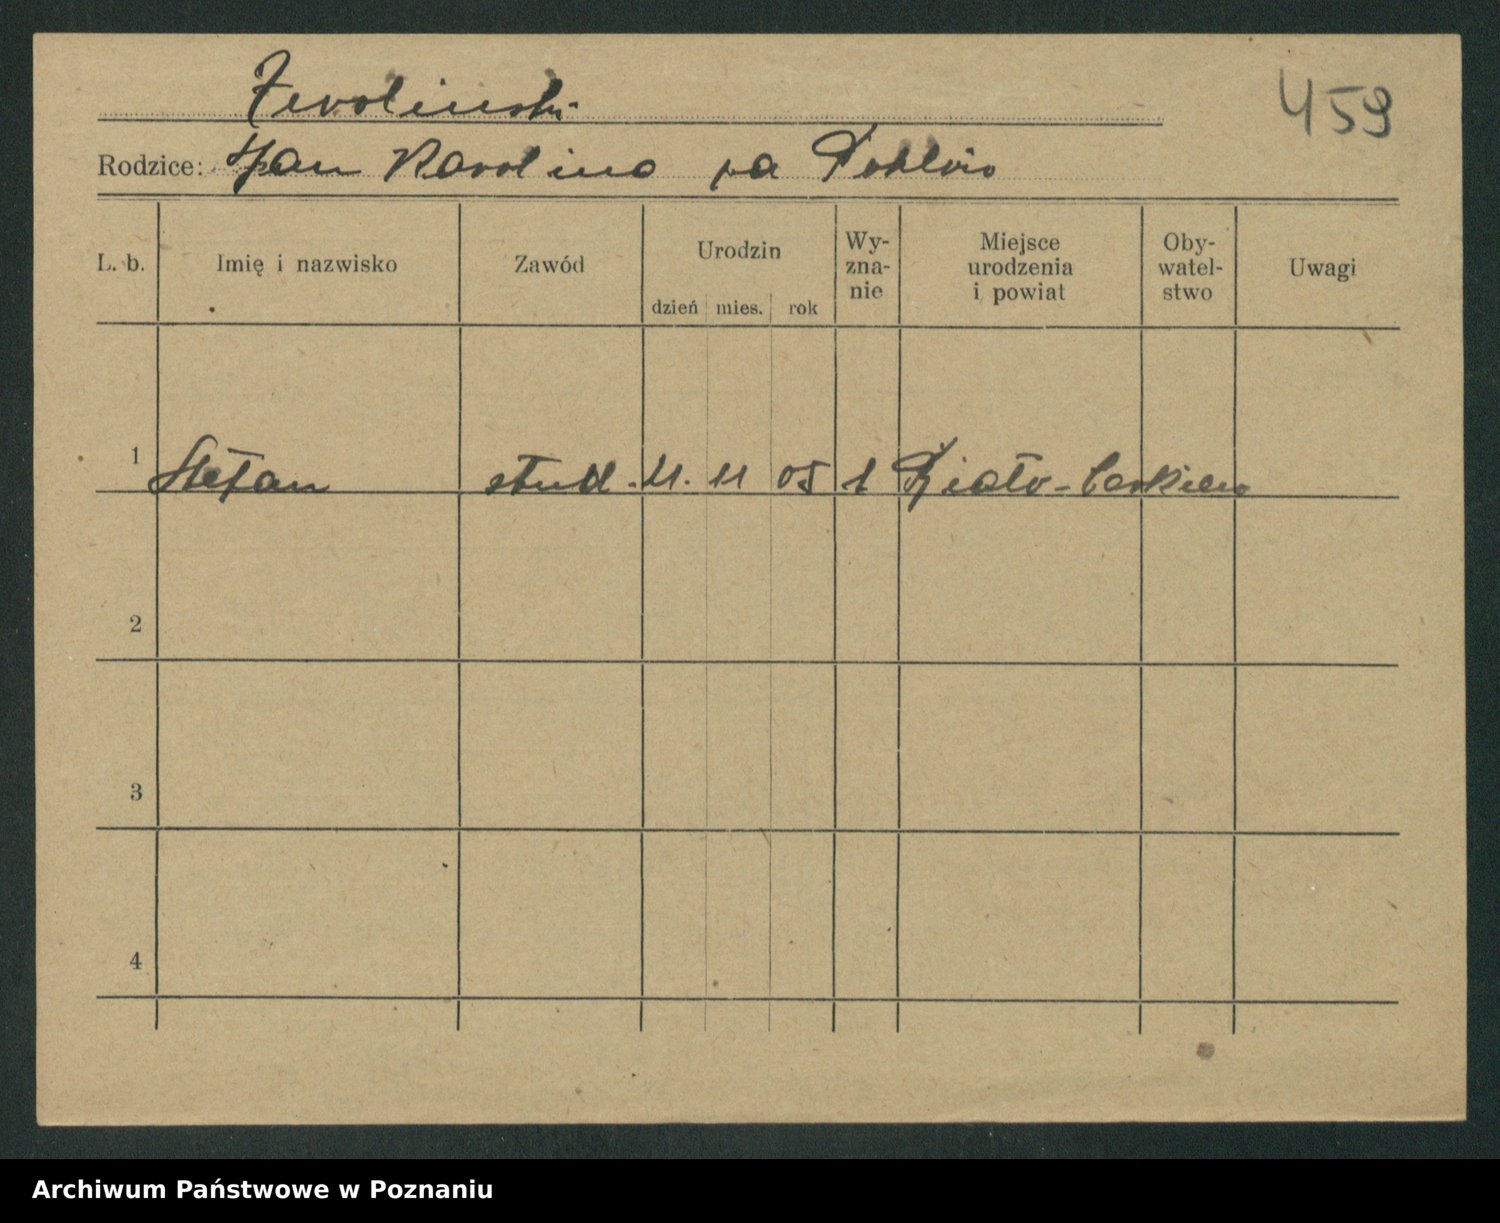 Zwolinski
459
Rodzice: Jan Karolina
L. b. Imię i nazwisko Zawód Urodzin Wy-zna-nie Miejsce urodzenia i powiat Oby-watel-stwo Uwagi
dzień mies. rok
1 Stefan stud. 11. 11 05 1
2
3
4
Archiwum Państwowe w Poznaniu